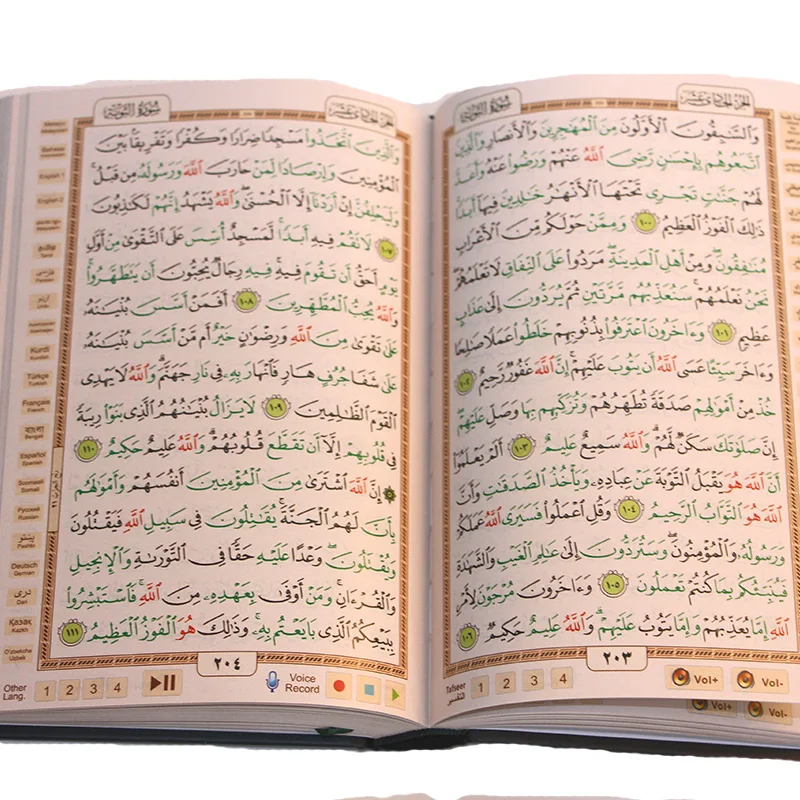 سورة التوبة
الجزء الحادي عشر
وَالسَّابِقُونَ الْأَوَّلُونَ مِنَ الْمُهَاجِرِينَ وَالْأَنصَارِ وَالَّذِينَ
اتَّبَعُوهُم بِإِحْسَانٍ رَّضِيَ اللَّهُ عَنْهُمْ وَرَضُوا عَنْهُ وَأَعَدَّ
لَهُمْ جَنَّاتٍ تَجْرِي تَحْتَهَا الْأَنْهَارُ خَالِدِينَ فِيهَا أَبَدًا
ذَٰلِكَ الْفَوْزُ الْعَظِيمُ ١٠٠ وَمِمَّنْ حَوْلَكُم مِّنَ الْأَعْرَابِ
مُنَافِقُونَ وَمِنْ أَهْلِ الْمَدِينَةِ مَرَدُوا عَلَى النِّفَاقِ لَا تَعْلَمُهُمْ
نَحْنُ نَعْلَمُهُمْ سَنُعَذِّبُهُم مَّرَّتَيْنِ ثُمَّ يُرَدُّونَ إِلَىٰ عَذَابٍ
عَظِيمٍ ١٠١ وَءَاخَرُونَ اعْتَرَفُوا بِذُنُوبِهِمْ خَلَطُوا عَمَلًا صَالِحًا
وَءَاخَرَ سَيِّئًا عَسَى اللَّهُ أَن يَتُوبَ عَلَيْهِمْ إِنَّ اللَّهَ غَفُورٌ رَّحِيمٌ ١٠٢
خُذْ مِنْ أَمْوَالِهِمْ صَدَقَةً تُطَهِّرُهُمْ وَتُزَكِّيهِم بِهَا وَصَلِّ عَلَيْهِمْ
إِنَّ صَلَوٰتَكَ سَكَنٌ لَّهُمْ وَاللَّهُ سَمِيعٌ عَلِيمٌ ١٠٣ أَلَمْ يَعْلَمُوا
أَنَّ اللَّهَ هُوَ يَقْبَلُ التَّوْبَةَ عَنْ عِبَادِهِ وَيَأْخُذُ الصَّدَقَاتِ وَأَنَّ
اللَّهَ هُوَ التَّوَّابُ الرَّحِيمُ ١٠٤ وَقُلِ اعْمَلُوا فَسَيَرَى اللَّهُ عَمَلَكُمْ
وَرَسُولُهُ وَالْمُؤْمِنُونَ وَسَتُرَدُّونَ إِلَىٰ عَالِمِ الْغَيْبِ وَالشَّهَادَةِ
فَيُنَبِّئُكُم بِمَا كُنتُمْ تَعْمَلُونَ ١٠٥ وَءَاخَرُونَ مُرْجَوْنَ لِأَمْرِ
اللَّهِ إِمَّا يُعَذِّبُهُمْ وَإِمَّا يَتُوبُ عَلَيْهِمْ وَاللَّهُ عَلِيمٌ حَكِيمٌ ١٠٦
٢٠٣
Tafseer
التفسير
1 2 3 4
Vol+ Vol-
Vol+ Vol-
سورة التوبة
الجزء الحادي عشر
وَالَّذِينَ اتَّخَذُوا مَسْجِدًا ضِرَارًا وَكُفْرًا وَتَفْرِيقًا بَيْنَ
الْمُؤْمِنِينَ وَإِرْصَادًا لِّمَنْ حَارَبَ اللَّهَ وَرَسُولَهُ مِن قَبْلُ
وَلَيَحْلِفُنَّ إِنْ أَرَدْنَا إِلَّا الْحُسْنَىٰ وَاللَّهُ يَشْهَدُ إِنَّهُمْ لَكَاذِبُونَ
١٠٧ لَا تَقُمْ فِيهِ أَبَدًا لَّمَسْجِدٌ أُسِّسَ عَلَى التَّقْوَىٰ مِنْ أَوَّلِ
يَوْمٍ أَحَقُّ أَن تَقُومَ فِيهِ فِيهِ رِجَالٌ يُحِبُّونَ أَن يَتَطَهَّرُوا
وَاللَّهُ يُحِبُّ الْمُطَّهِّرِينَ ١٠٨ أَفَمَنْ أَسَّسَ بُنْيَانَهُ
عَلَىٰ تَقْوَىٰ مِنَ اللَّهِ وَرِضْوَانٍ خَيْرٌ أَم مَّنْ أَسَّسَ بُنْيَانَهُ
عَلَىٰ شَفَا جُرُفٍ هَارٍ فَانْهَارَ بِهِ فِي نَارِ جَهَنَّمَ وَاللَّهُ لَا يَهْدِي
الْقَوْمَ الظَّالِمِينَ ١٠٩ لَا يَزَالُ بُنْيَانُهُمُ الَّذِي بَنَوْا رِيبَةً
فِي قُلُوبِهِمْ إِلَّا أَن تَقَطَّعَ قُلُوبُهُمْ وَاللَّهُ عَلِيمٌ حَكِيمٌ ١١٠
إِنَّ اللَّهَ اشْتَرَىٰ مِنَ الْمُؤْمِنِينَ أَنفُسَهُمْ وَأَمْوَالَهُم
بِأَنَّ لَهُمُ الْجَنَّةَ يُقَاتِلُونَ فِي سَبِيلِ اللَّهِ فَيَقْتُلُونَ
وَيُقْتَلُونَ وَعْدًا عَلَيْهِ حَقًّا فِي التَّوْرَاةِ وَالْإِنجِيلِ
وَالْقُرْءَانِ وَمَنْ أَوْفَىٰ بِعَهْدِهِ مِنَ اللَّهِ فَاسْتَبْشِرُوا
بِبَيْعِكُمُ الَّذِي بَايَعْتُم بِهِ وَذَٰلِكَ هُوَ الْفَوْزُ الْعَظِيمُ ١١١
٢٠٤
English 1
English 2
தமிழ்
Tamil
فارسی
Persian
اردو
Urdu
Kurdî
Kurdish
Türkçe
Turkish
Français
French
বাংলা
Bengali
Español
Spanish
Soomaali
Somali
Русский
Russian
پښتو
Pashto
Deutsch
German
دری
Dari
Қазақ
Kazkh
O'zbekcha
Uzbek
Other
Lang.
1 2 3 4
Voice
Record